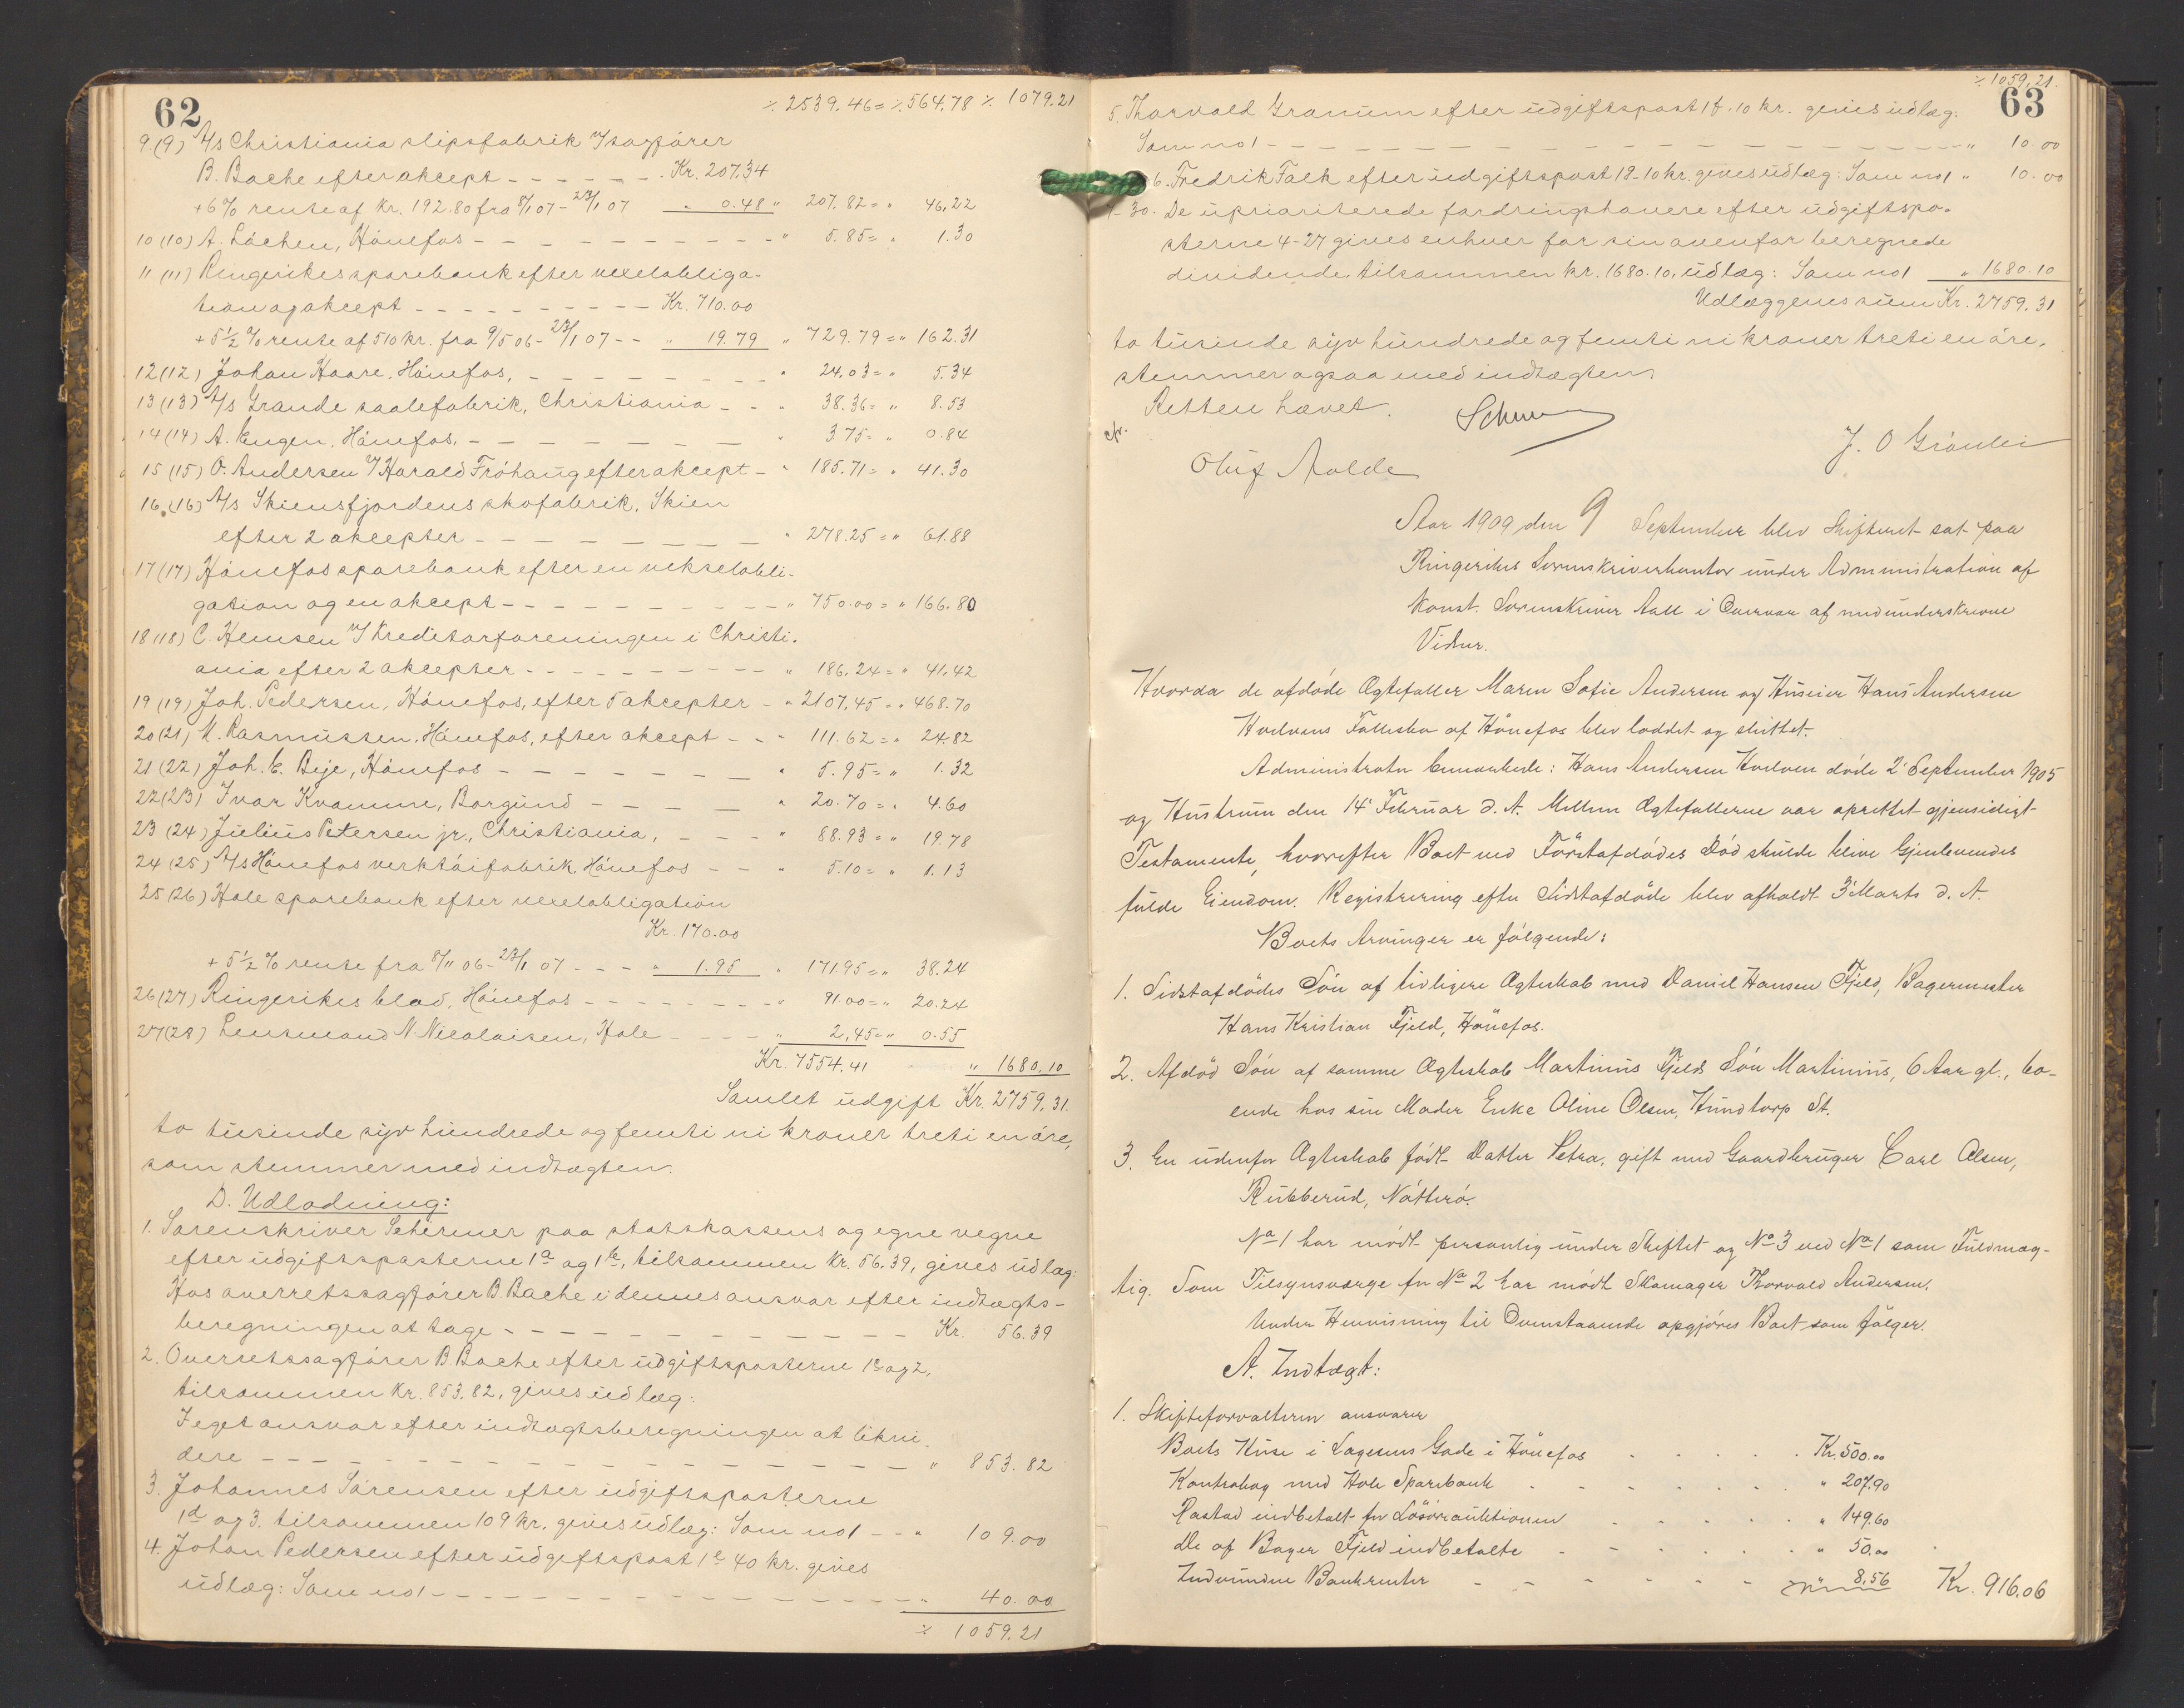 62
٪ 2539.46 = ٪ 564.78 ٪ 1079.21
9.(9) A/s Christiania slipsfabrik v/ sagfører
B. Bache efter akcept - - - - - - Kr. 207.34
+ 6% rente af kr. 192.80 fra 8/1 07 - 23/1 07 " 0.48 " 207.82 = " 46.22
10 (10) A. Løchen, Hønefos - - - - - - - - - " 5.85 = " 1.30
11 (11) Ringerikes sparebank efter vexelobliga-
tion og akcept - - - - - - - - - Kr. 710.00
+ 5½ % rente af 510 kr. fra 9/5 06 - 23/1 07 - - " 19.79 " 729.79 = " 162.31
12 (12) Johan Kaare, Hønefos, - - - - - - - - " 24.03 = " 5.34
13 (13) A/s Grande saalefabrik, Christiania - - " 38.36 = " 8.53
14 (14) A. Engen, Hønefos, - - - - - - - " 3 75 = " 0.84
15 (15) O. Andersen v/ Harald Frøhaug efter akcept - " 185.71 = " 41.30
16 (16) A/s Skiensfjordens skofabrik, Skien
efter 2 akcepter - - - - - - - - " 278.25 = " 61.88
17 (17) Hønefos sparebank efter en vekselobli-
gation og en akcept - - - - - - - - - " 750.00 = " 166.80
18 (18) C. Hemsen v/ Kreditorforeningen i Christi-
ania efter 2 akcepter - - - - - - - - " 186.24 = " 41.42
19 (19) Joh. Pedersen, Hønefos, efter 5 akcepter - " 2107.45 = " 468.70
20 (21) M. Rasmussen, Hønefos, efter akcept - - " 111.62 = " 24.82
21 (22) Joh. E. Beje, Hønefos - - - - - - - " 5.95 = " 1.32
22 (23) Ivar Kvamme, Borgund - - - - - " 20.70 = " 4.60
23 (24) Julius Petersen jr., Christiania, - - - - " 88.93 = " 19.78
24 (25) A/s Hønefos verktøifabrik, Hønefos - - " 5.10 = " 1.13
25 (26) Hole sparebank efter vexelobligation
Kr. 170.00
+ 5½ % rente fra 8/11 06 - 23/1 07 - - - " 1.95 " 171.95 = " 38.24
26 (27) Ringerikes blad, Hønefos - - - - - - - - " 91.00 = " 20.24
27 (28) Lensmand N. Nicolaisen, Hole - - - - " 2.45 = " 0.55
Kr. 7554.41 " 1680.10
Samlet udgift Kr. 2759.31.
to tusinde syv hundrede og femti ni kroner treti en øre,
som stemmer med indtægten.
D. Udlodning:
1. Sorenskriver Schermer paa statskassens og egne vegne
efter udgiftsposterne 1a og 1b, tilsammen kr. 56.39, gives udlæg:
Hos overretssagfører B Bache i dennes ansvar efter indtægts-
beregningen at tage - - - - - - - - - - Kr. 56.39
2. Overretssagfører B. Bache efter udgiftsposterne 1c og 2,
tilsammen kr. 853.82, gives udlæg:
I eget ansvar efter indtægtsberegningen at likvi-
dere - - - - - - - - - - - - - - - - " 853.82
3. Johannes Sørensen efter udgiftsposterne
1d og 3. tilsammen 109 kr. gives udlæg: Som no 1 - - " 109.00
4. Johan Pedersen efter udgiftspost 1e 40 kr. gives
udlæg: Som no 1 - - - - - - - - - - - - - - " 40.00
٪ 1059.21
63
٪ 1059.21.
5. Thorvald Granum efter udgiftspost 1f. 10 kr. gives udlæg:
Som no 1 - - - - - - - - - - - - - - - - - - - - " 10.00
6. Fredrik Falk efter udgiftspost 18 - 10 kr. gives udlæg: Som no 1 " 10.00
7-30. De uprioriterede fordringshavere efter udgiftspo-
sterne 4-27 gives enhver for sin ovenfor beregnede
dividende tilsammen kr. 1680.10, udlæg: Som no 1 " 1680.10
Udlæggenes sum Kr. 2759.31
to tusinde syv hundrede og femti ni kroner treti en øre,
stemmer ogsaa med indtægten.
Retten hævet.
Oluf Molde
Aar 1909 den 9 September blev Skifteret sat paa
Ringerikes Sorenskriverkontor under Administration af
konst. Sorenskriver Aall i Overvær af medunderskrevne
Vidner.
Hvorda de afdøde Ægtefæller Maren Sofie Andersen og Huseier Hans Andersen
Hvelvens Fællesbo af Hønefos blev loddet og sluttet.
Administrator bemærkede: Hans Andersen Hvelven døde 2' September 1905
og Hustruen den 14' Februar d. A. Mellem Ægtefællerne var oprettet gjensidigt
Testamente, hvorefter Boet ved Førstafdødes Død skulde blive Gjenlevendes
fulde Eiendom. Registrering efter Sidstafdøde blev afholdt 3' Marts d. A.
Boets Arvinger er følgende:
1. Sidstafdødes Søn af tidligere Ægteskab med Daniel Hansen Fjeld, Bagermester
Hans Kristian Fjeld, Hønefos.
2. Afdød Søn af samme Ægteskab Martinius Fjelds Søn Martinius, 6 Aar gl., bo-
ende hos sin Moder Enke Oline Olsen, Hundtorp St.
3. En udenfor Ægteskab født Datter Petra, gift med Gaardbruger Carl Olsen,
Rubberud, Nøtterø.
No 1 har mødt personlig under Skiftet og No 3 ved No 1 som Fuldmæg-
tig. Som Tilsynsværge for No 2 har mødt Skomager Thorvald Andersen.
Under Henvisning til Ovenstaaende opgjøres Boet som følger.
A. Indtægt:
1. Skifteforvalteren ansvarer
Boets Huse i Lagesens Gade i Hønefos . . . . . Kr. 500.00
Kontrabog med Hole Sparebank . . . . . . . " 207.90
Restad indbetalt for Løsøreauktionen . . . . . " 149.60
De af Bager Fjeld indbetalte - - . . . . . " 50.00
Indvundne Bankrenter - - - - - - " 8.56 Kr. 916.06